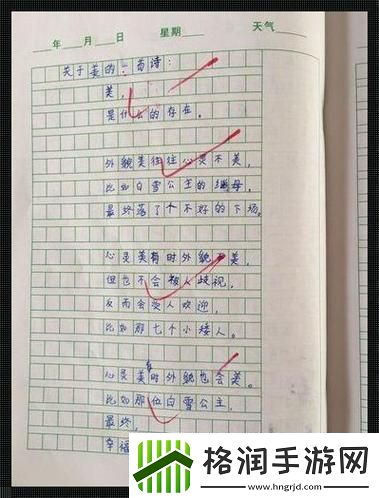 年 月 日 星期 天气
关于美的一首诗：
美，
是什么的存在。
外貌美往往心灵不美，
比如白雪公主的继母，
最终落了个不好的下场。
心灵美有时外貌不美，
但也不会被人歧视，
反而会受人欢迎，
比如那七个小矮人。
心灵美有时外貌也会美。
比如那位白雪公主，
最终，
幸福
格润手游网
www.hngrjd.com